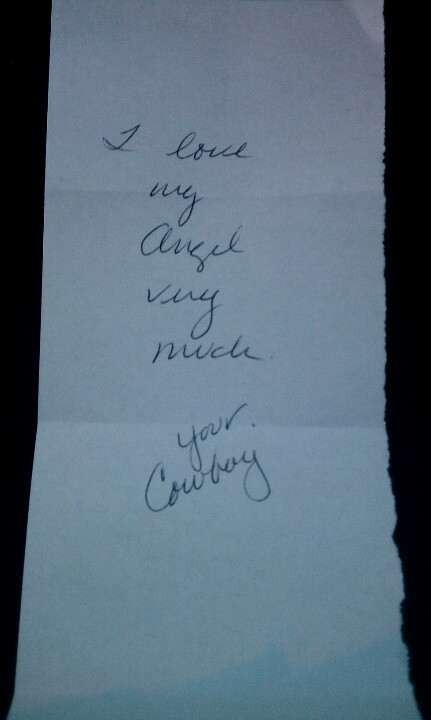 I love
my
Angel
very
much.
your.
Cowboy